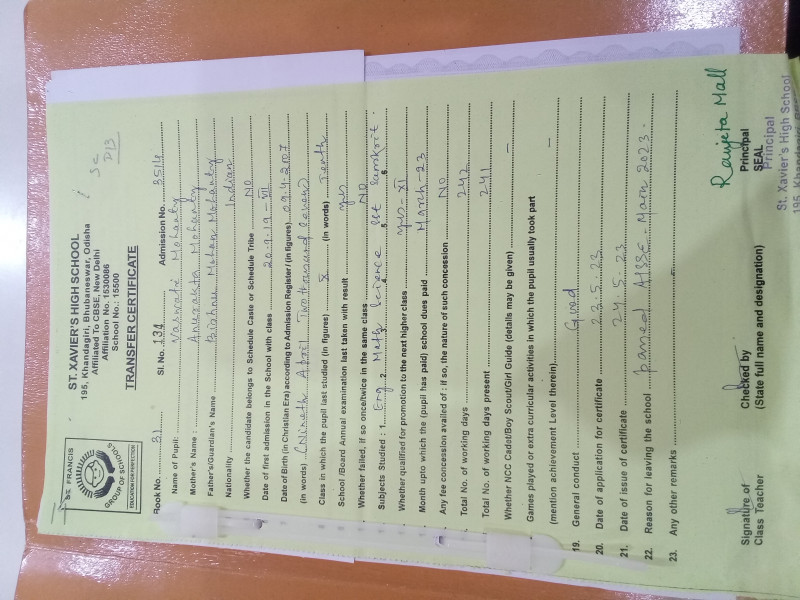 ST. FRANCIS
GROUP OF SCHOOLS
EDUCATION FOR PERFECTION
ST. XAVIER'S HIGH SCHOOL
195, Khandagiri, Bhubaneswar, Odisha
Affiliated To CBSE, New Delhi
Affiliation No: 1530086
School No.: 15500
TRANSFER CERTIFICATE
Book No. 31 Sl. No. 134 Admission No. 3514
Name of Pupil: Mohanty
Mother's Name: Mohanty
Father's/Guardian's Name Bishnu Mohan Mohanty
Nationality Indian
Whether the candidate belongs to Schedule Caste or Schedule Tribe NO
Date of first admission in the School with class 20.9.19 - VI
Date of Birth (in Christian Era) according to Admission Register / (in figures) 09.4.2007
(in words) (Nineth April Two thousand Seven)
Class in which the pupil last studied (in figures) X (in words) Tenth
School /Board Annual examination last taken with result yes
Whether failed, if so once/twice in the same class NO
Subjects Studied : 1. Eng 2. Math 3. Science 4. SST 5. Sanskrit 6.
Whether qualified for promotion to the next higher class yes - XI
Month upto which the (pupil has paid) school dues paid March - 23
Any fee concession availed of : if so, the nature of such concession NO
Total No. of working days 242
Total No. of working days present 241
Whether NCC Cadet/Boy Scout/Girl Guide (details may be given) —
Games played or extra curricular activities in which the pupil usually took part
(mention achievement Level therein) —
19. General conduct Good
20. Date of application for certificate 23.5.23
21. Date of issue of certificate 24.5.23
22. Reason for leaving the school passed AISSE - March 2023.
23. Any other remarks
Ranjeta Mall
Signature of Checked by Principal
Class Teacher (State full name and designation) SEAL
Principal
St. Xavier's High School
195, Khandagiri